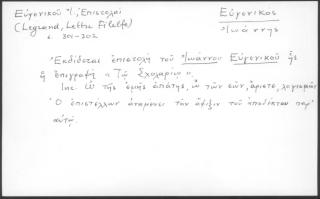 Εὐγενικοῦ Ἰ., Ἐπιστολαὶ
Εὐγενικος
(Legrand, Lettres Filelfe)
Ἰωάννης
σ. 301-302
Ἐκδίδεται ἐπιστολὴ τοῦ Ἰωάννου Εὐγενικοῦ ἧς
ἡ ἐπιγραφὴ «Τῷ Σχολαρίῳ».
Inc. Ὢ τῆς ἐμῆς ἀπάτης, ὢ τῶν σῶν, ἄριστε, λογισμῶν
Ὁ ἐπιστέλλων ἀναμένει τὴν ἄφιξιν τοῦ ἀποδέκτου παρ'
αὐτῷ.